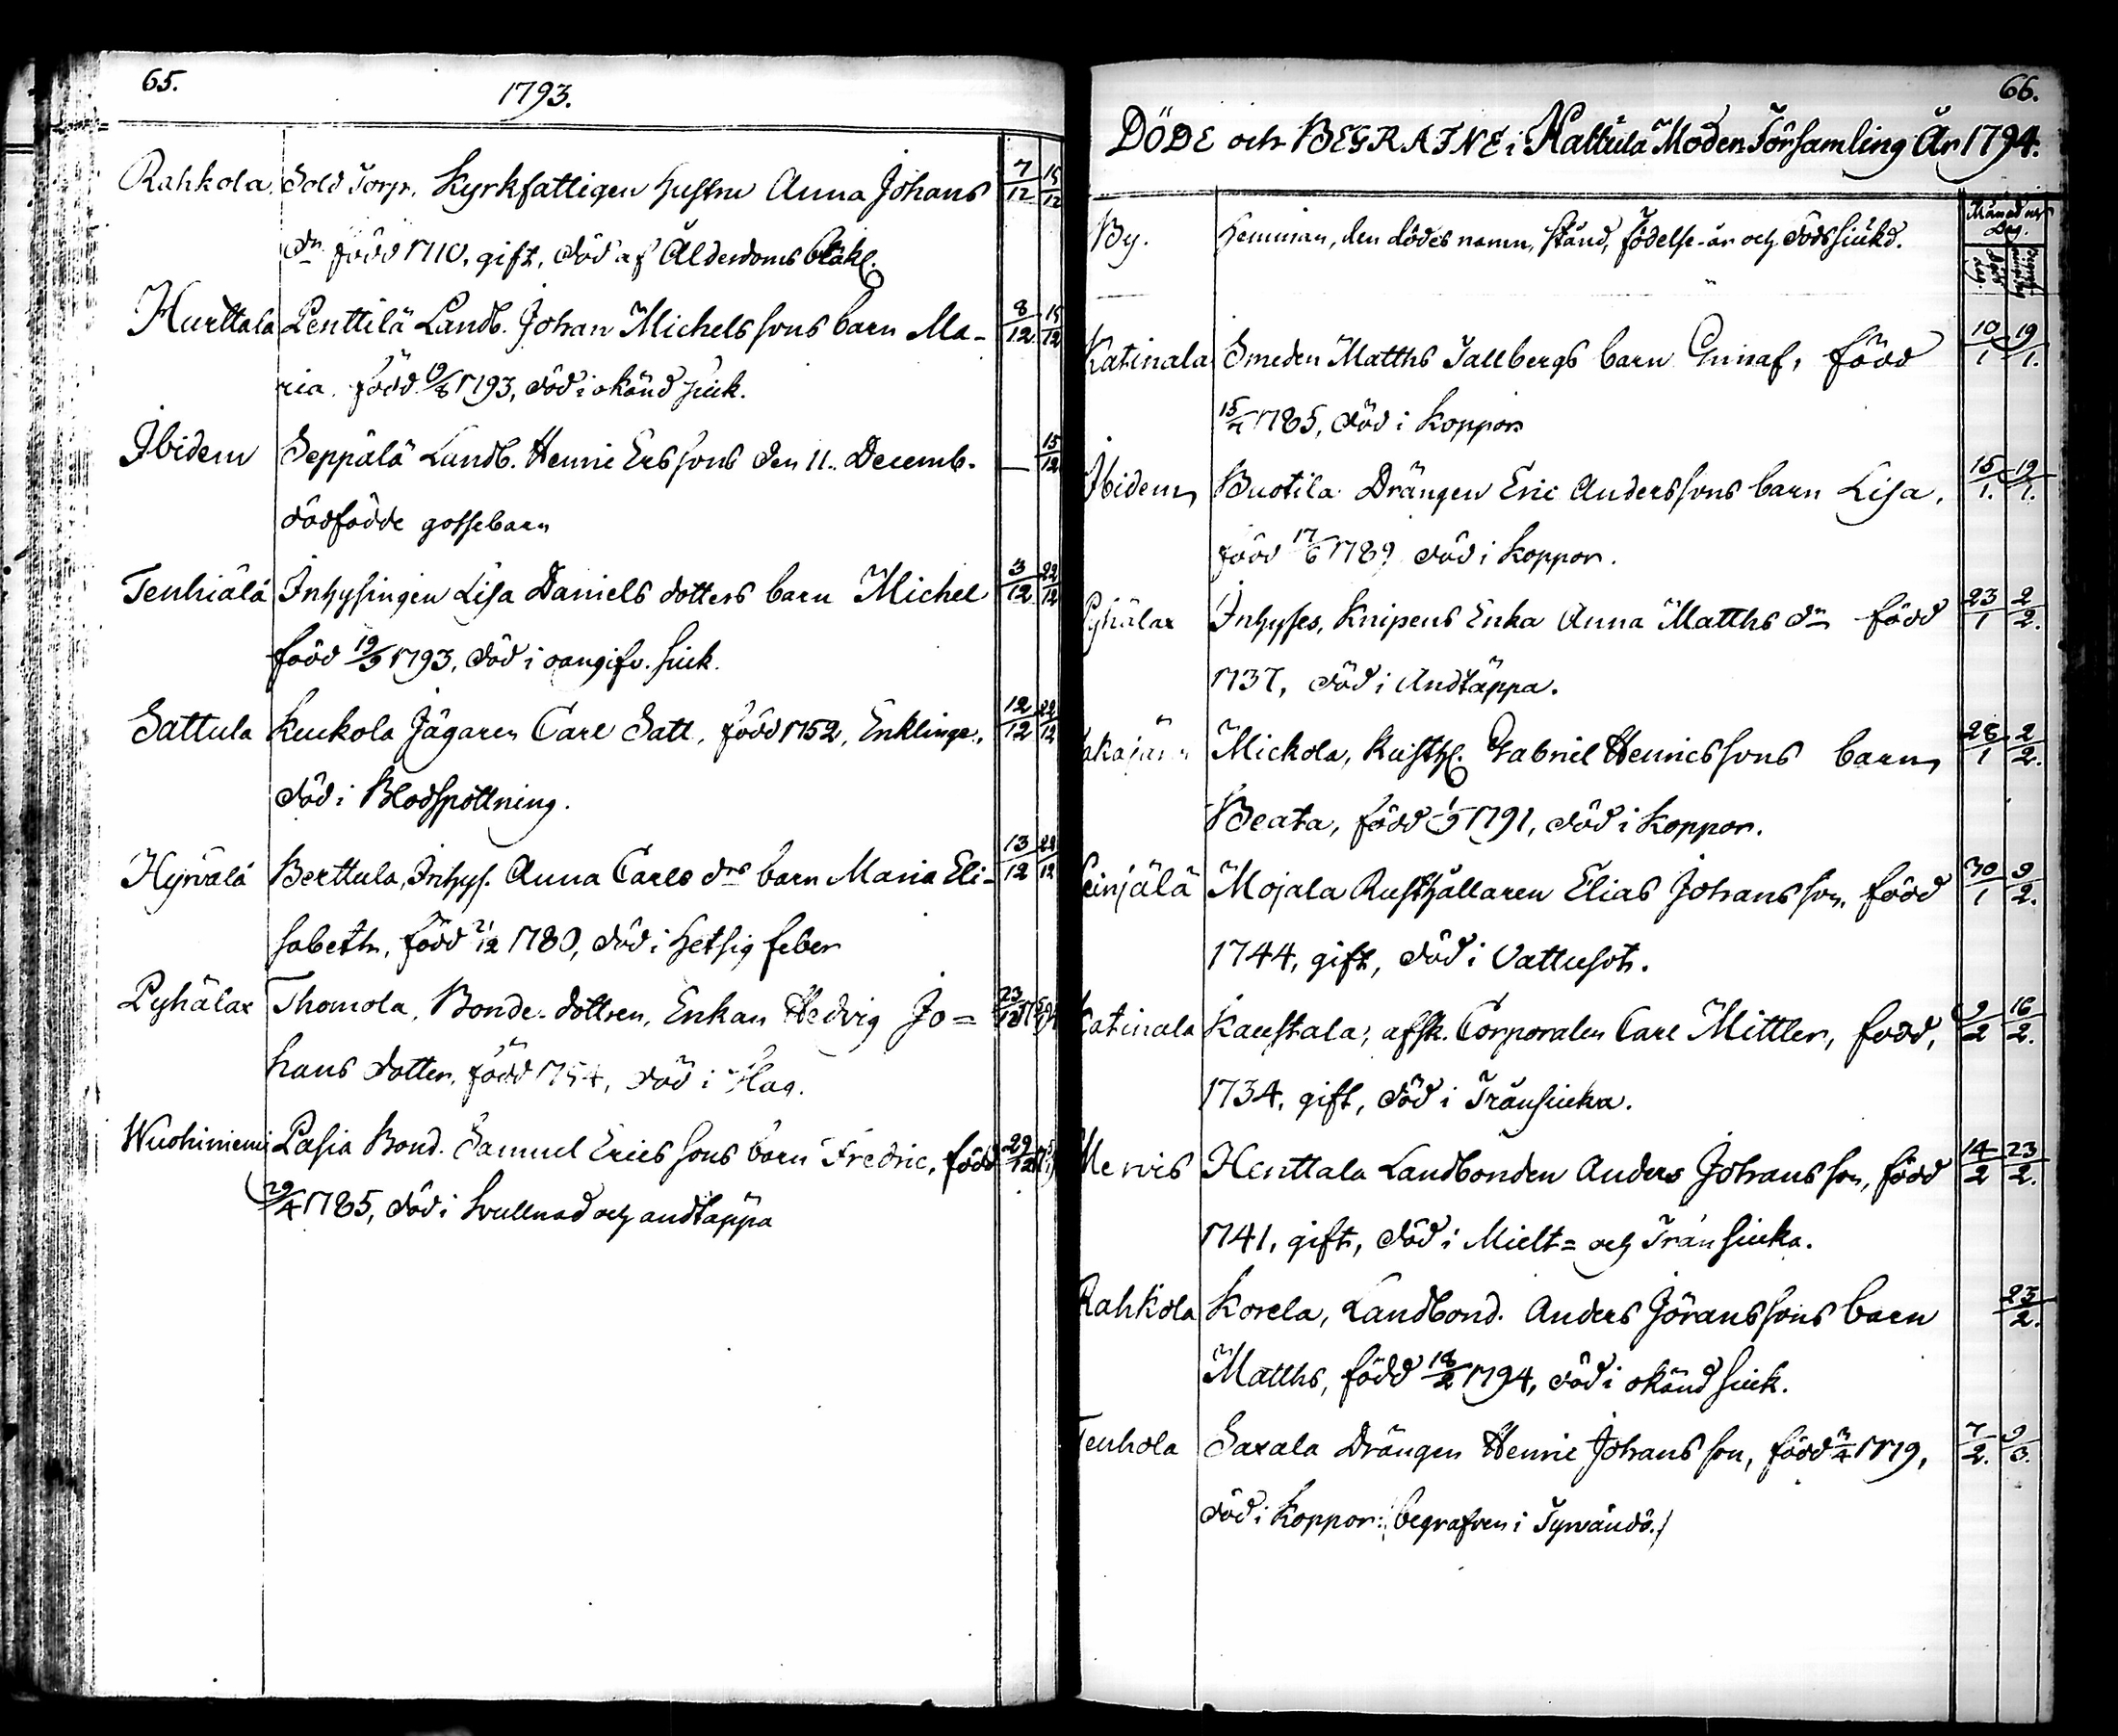 65.
1793.
Rahkola. Sold Torp. Kyrkfattigen hustru Anna Johans 7/12 15/12
dr född 1710, gift, död af Ålderdoms bräkl.
Hurttala Penttilä Landb. Johan Michelssons barn Ma- 8/12 15/12
ria. född 1793, död i okänd siuk.
Ibidem Seppälä Landb. Henric Erssons den 11. Decemb. — 15/12
dödfödde gossebarn
Tenhiälä Inhysingen Lisa Daniels dotters barn Michel 3/12 22/12
född 19/9 1793, död i oangifv. siuk.
Sattula Kuckola Jägaren Carl Satt, född 1752, Enklinge, 12/12 22/12
död i Blodspottning.
Hyrvälä Berttula, Inhys. Anna Carls drs barn Maria Eli- 13/12 22/12
sabeth, född 21/12 1780, död i hetsig feber
Pyhälax Thomola, Bonde-dottren, Enkan Hedvig Jo= 23/12
hans dotter, född 1754, död i
Wuohiniemi Pasia Bond. Samuel Ericssons barn Fredric, född 29/12
29/4 1785, död i Svullnad och andtäppa
66.
DÖDE och BEGRAFNE i Hattula Moder Församling År 1794.
By. Hemman, den dödes namn, stånd, födelse-år och dödssiukd. Månad och Dag.
Katinala Smeden Matths Tallbergs barn född 10/1 19/1.
1785, död i Koppor
Ibidem Buotila Drängen Eric Anderssons barn Lisa, 15/1. 19/1.
född 17/6 1789 död i Koppor.
Pyhälax Inhyses, Knipens Enka Anna Matths dr född 23/1 2/2.
1737, död i Andtäppa.
Mickola, Rusth. Gabriel Henricssons barn 28/1 2/2.
Beata, född 1/9 1791, död i Koppor.
Leinjälä Mojala Rusthållaren Elias Johansson, född 30/1 9/2.
1744, gift, död i Vattusot.
Katinala Kaustala, afsk. Corporalen Carl Mittler, född, 9/2 16/2.
1734, gift, död i Tränsiuka.
Mervis Henttala Landbonden Anders Johansson, född 14/2 23/2.
1741, gift, död i Mielt= och Trånsiuka.
Rahkola Korela, Landbond. Anders Jöranssons barn 23/2.
Matths, född 18/2 1794, död i okänd siuk.
Tenhola Saxala Drängen Henric Johansson, född 1779, 7/2. 9/3.
död i Koppor: begrafven i Tyrvändö.)